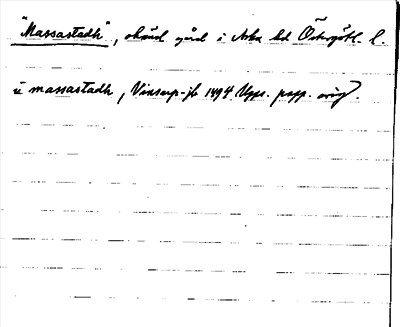 "Massastadh", okänd gård i Aska hd Östergötl. l.
i massastadh, Vinsarp-jb 1494. Upps. papp. orig.